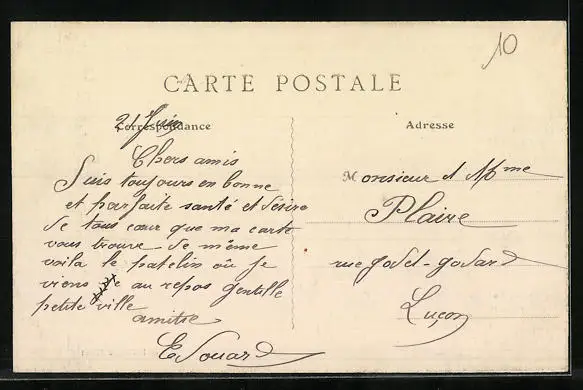 10
CARTE POSTALE
Correspondance
Adresse
21 Juin
Chers amis
Suis toujours en bonne
et parfaite santé et désire
de tous cœur que ma carte
vous trouve de même
voila le patelin où je
viens au repos gentille
petite ville
amitié
Edouard
Monsieur et Mme
Plaire
rue godet-godard
Luçon